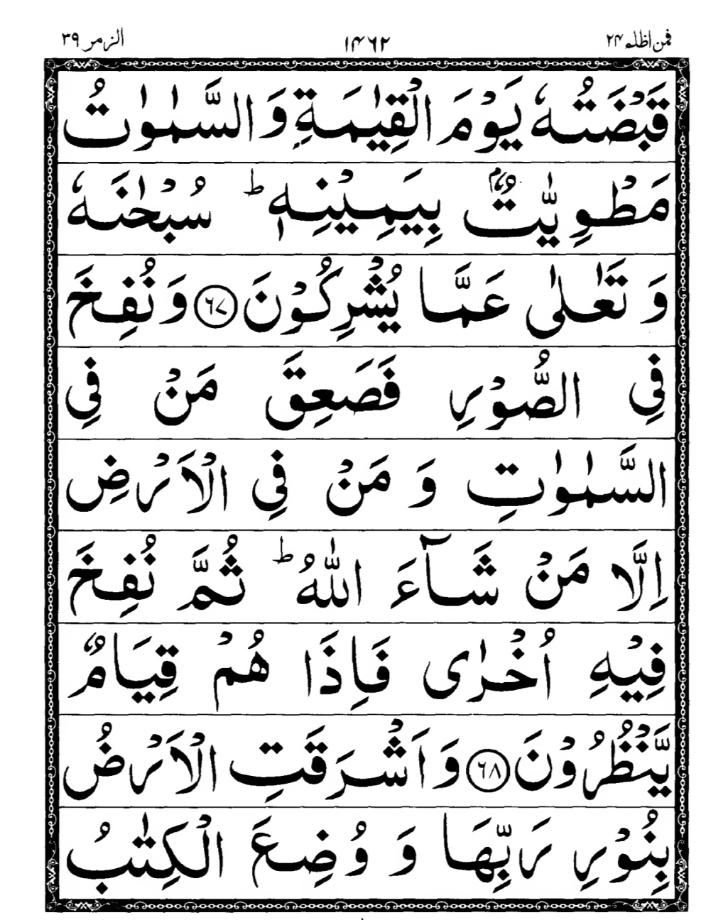 فمن اظلم ۲۴ ۱۴۶۲ الزمر ۳۹
قَبْضَتُهٗ یَوْمَ الْقِیٰمَةِ وَ السَّمٰوٰتُ
مَطْوِیّٰتٌۢ بِیَمِیْنِهٖ ؕ سُبْحٰنَهٗ
وَ تَعٰلٰی عَمَّا یُشْرِكُوْنَ ﴿۶۷﴾ وَ نُفِخَ
فِی الصُّوْرِ فَصَعِقَ مَنْ فِی
السَّمٰوٰتِ وَ مَنْ فِی الْاَرْضِ
اِلَّا مَنْ شَآءَ اللّٰهُ ؕ ثُمَّ نُفِخَ
فِیْهِ اُخْرٰی فَاِذَا هُمْ قِیَامٌ
یَّنْظُرُوْنَ ﴿۶۸﴾ وَ اَشْرَقَتِ الْاَرْضُ
بِنُوْرِ رَبِّهَا وَ وُضِعَ الْكِتٰبُ